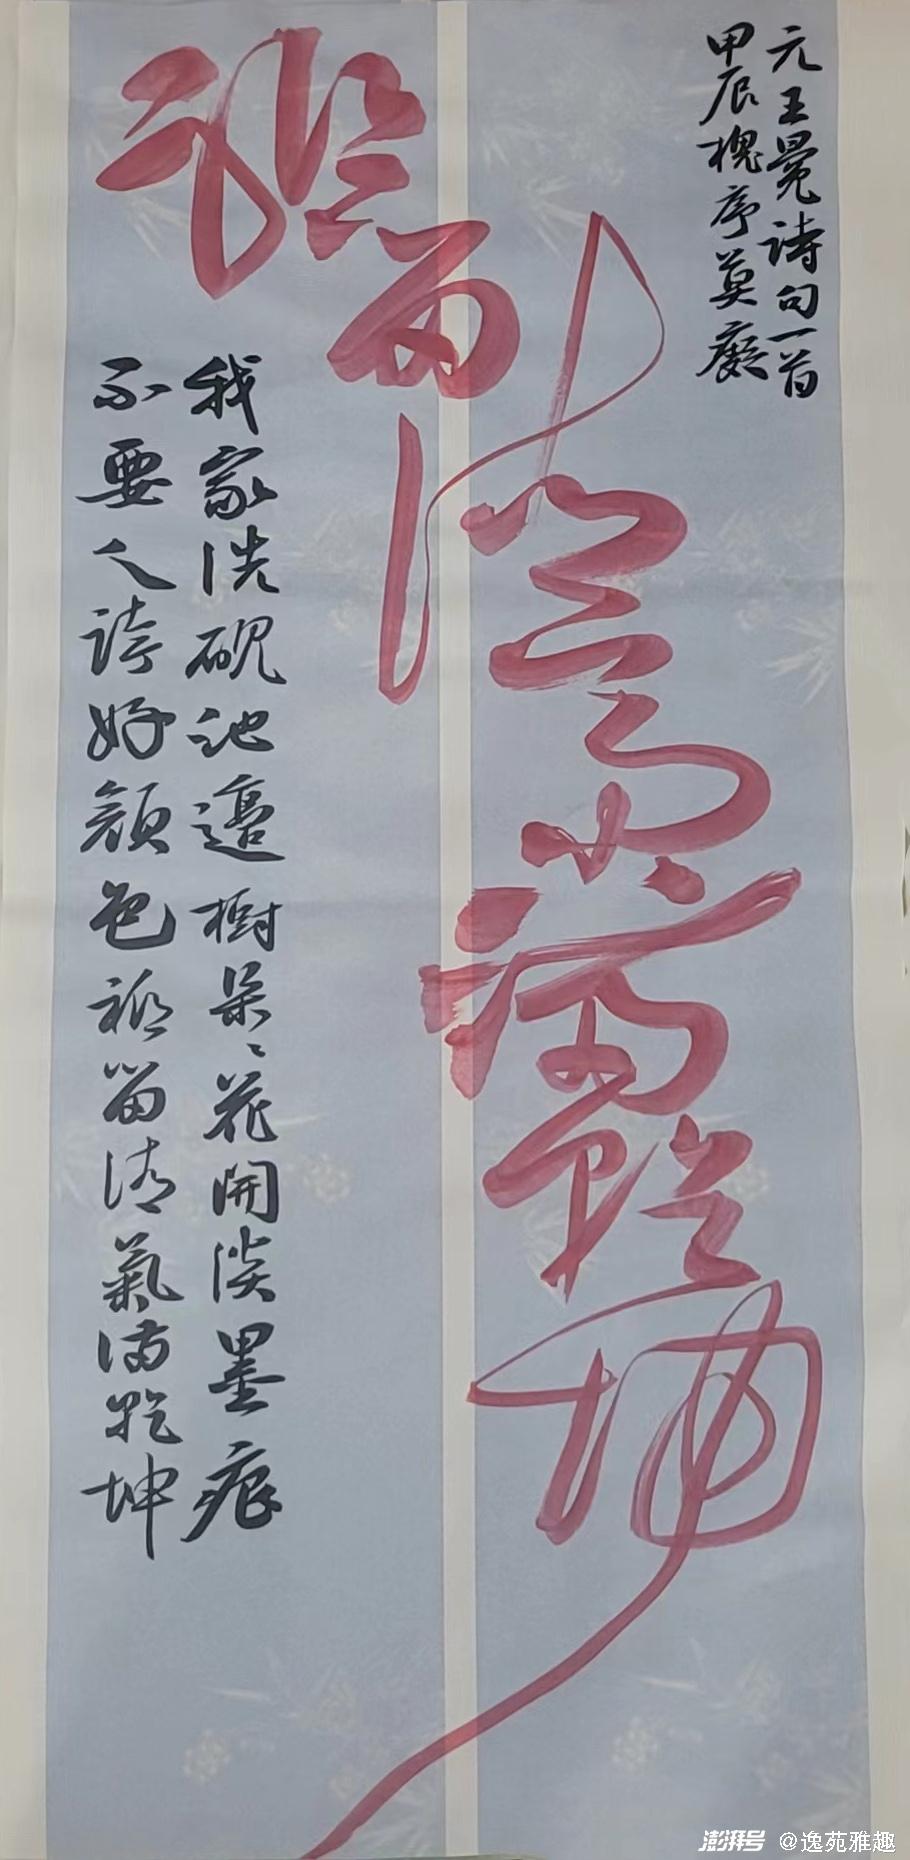 元王冕詩句一首
甲辰槐序莫
祗留清氣滿乾坤
我家洗硯池邊樹朵々花開淡墨痕
不要人誇好顏色祗留清氣滿乾坤
澎湃号 @逸苑雅趣